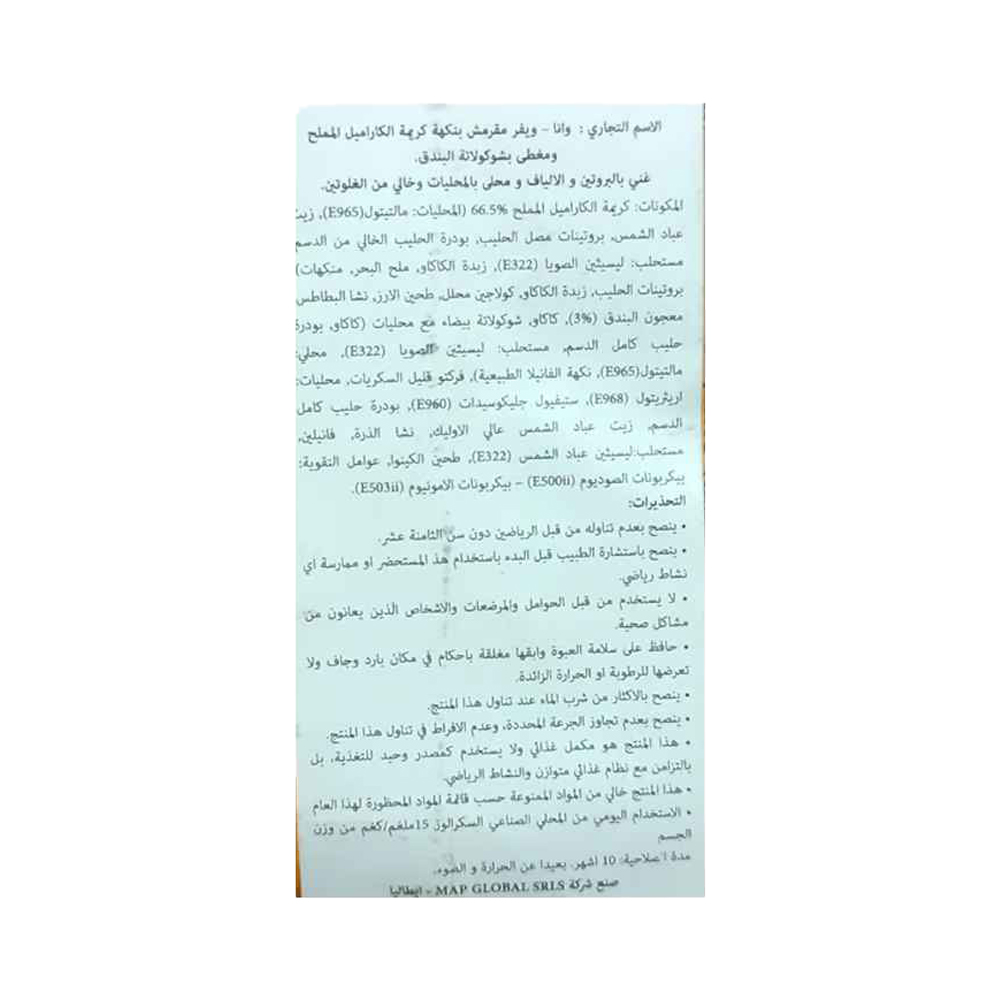 الاسم التجاري : وانا – ويفر مقرمش بنكهة كريمة الكاراميل المملح
ومغطى بشوكولاتة البندق.
غني بالبروتين و الالياف و محلى بالمحليات وخالي من الغلوتين.
المكونات: كريمة الكاراميل المملح 66.5% (المحليات: مالتيتول(E965), زيت
عباد الشمس, بروتينات مصل الحليب, بودرة الحليب الخالي من الدسم
مستحلب: ليسيثين الصويا (E322), زبدة الكاكاو, ملح البحر, منكهات)
بروتينات الحليب, زبدة الكاكاو, كولاجين محلل, طحين الارز, نشا البطاطس
معجون البندق (3%), كاكاو, شوكولاتة بيضاء مع محليات (كاكاو, بودرة
حليب كامل الدسم, مستحلب: ليسيثين الصويا (E322), محلي:
مالتيتول(E965), نكهة الفانيلا الطبيعية), فركتو قليل السكريات, محليات:
اريثريتول (E968), ستيفيول جليكوسيدات (E960), بودرة حليب كامل
الدسم, زيت عباد الشمس عالي الاوليك, نشا الذرة, فانيلين,
مستحلب:ليسيثين عباد الشمس (E322), طحين الكينوا, عوامل التقوية:
بيكربونات الصوديوم (E500ii) – بيكربونات الامونيوم (E503ii).
التحذيرات:
• ينصح بعدم تناوله من قبل الرياضين دون سن الثامنة عشر.
• ينصح باستشارة الطبيب قبل البدء باستخدام هذ المستحضر او ممارسة اي
نشاط رياضي.
• لا يستخدم من قبل الحوامل والمرضعات والاشخاص الذين يعانون من
مشاكل صحية.
• حافظ على سلامة العبوة وابقها مغلقة باحكام في مكان بارد وجاف ولا
تعرضها للرطوبة او الحرارة الزائدة.
• ينصح بالاكثار من شرب الماء عند تناول هذا المنتج.
• ينصح بعدم تجاوز الجرعة المحددة, وعدم الافراط في تناول هذا المنتج.
• هذا المنتج هو مكمل غذائي ولا يستخدم كمصدر وحيد للتغذية, بل
بالتزامن مع نظام غذائي متوازن والنشاط الرياضي.
• هذا المنتج خالي من المواد الممنوعة حسب قائمة المواد المحظورة لهذا العام
• الاستخدام اليومي من المحلي الصناعي السكرالوز 15ملغم/كغم من وزن
الجسم
مدة الصلاحية: 10 اشهر. بعيدا عن الحرارة و الضوء.
صنع شركة MAP GLOBAL SRLS - ايطاليا